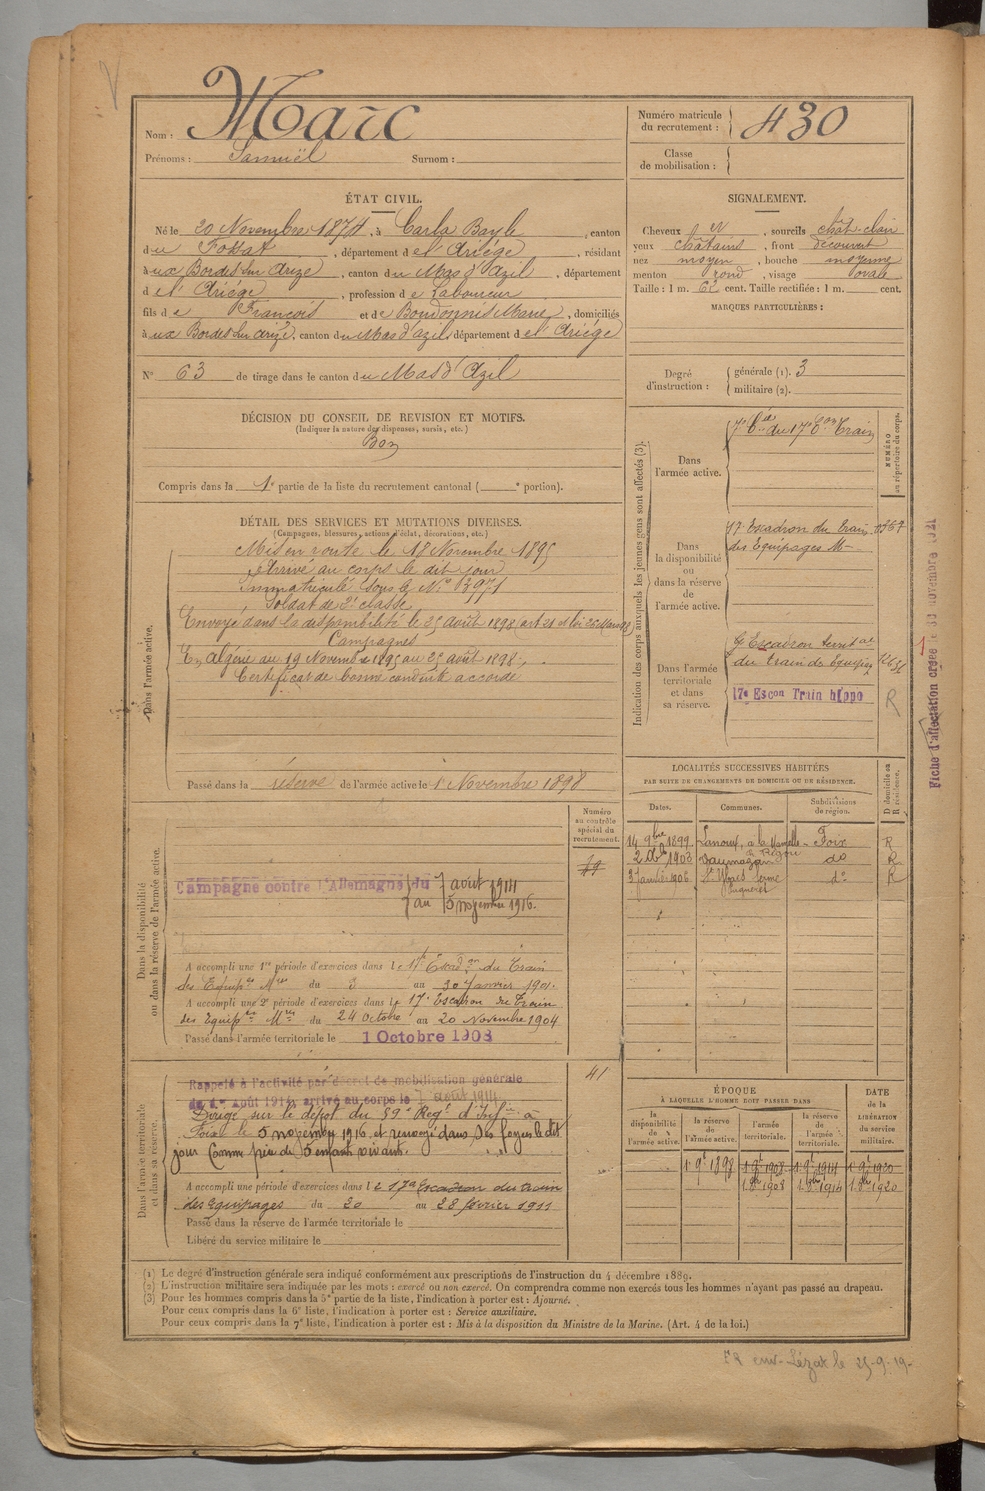 Nom : Marc
Prénoms : Samuël Surnom :
Numéro matricule du recrutement : 430
Classe de mobilisation :
ÉTAT CIVIL.
Né le 20 Novembre 1874, à Carla Bayle, canton
du Fossat, département de l'Ariége, résidant
aux Bordes sur Arize, canton du Mas d'Azil, département
de l'Ariége, profession de Laboureur
fils de François et de Boudonnis Marie, domiciliés
aux Bordes sur Arize, canton du Mas d'azil, département de l'Ariége
N° 63 de tirage dans le canton du Mas d'Azil
SIGNALEMENT.
Cheveux et, sourcils chât. clair
yeux châtains, front découvert
nez moyen, bouche moyenne
menton rond, visage ovale
Taille : 1 m. 62 cent. Taille rectifiée : 1 m. cent.
MARQUES PARTICULIÈRES :
Degré d'instruction : générale (1). 3
militaire (2).
DÉCISION DU CONSEIL DE REVISION ET MOTIFS.
(Indiquer la nature des dispenses, sursis, etc.)
Bon
Compris dans la 1e partie de la liste du recrutement cantonal ( e portion).
DÉTAIL DES SERVICES ET MUTATIONS DIVERSES.
(Campagnes, blessures, actions d'éclat, décorations, etc.)
Dans l'armée active.
Mis en route le 18 Novembre 1895
Arrivé au corps le dit jour
Immatriculé sous le N° 3971
Soldat de 2e classe
Envoyé dans la disponibilité le 25 août 1898 (art 21
Campagnes
En algérie du 19 Novembre 1895 au 25 août 1898.
Certificat de bonne conduite accordé
Passé dans la réserve de l'armée active le 1er Novembre 1898
Indication des corps auxquels les jeunes gens sont affectés (3).
NUMÉRO au répertoire du corps.
Dans l'armée active.
7e Cie du 17e Eon Train
Dans la disponibilité ou dans la réserve de l'armée active.
17e Escadron du Train 1367
des Equipages Mres
Dans l'armée territoriale et dans sa réserve.
17e Escadron territal
du train des équipages
17e Escon Train hippo R
Fiche d'affectation créée le 30 novembre 1921
LOCALITÉS SUCCESSIVES HABITÉES
PAR SUITE DE CHANGEMENTS DE DOMICILE OU DE RÉSIDENCE.
Dates. Communes. Subdivisions de région. D domicile ou R résidence.
14 9bre 1899 Lanoux, à la Foix R
2 1903 Daumazan do R
3 Janvier 1906 do R
Numéro au contrôle spécial du recrutement.
Dans la disponibilité ou dans la réserve de l'armée active.
Campagne contre l'Allemagne du 7 août 1914
au 5 novembre 1916.
A accompli une 1re période d'exercices dans le 17e Escadon du Train
des Equipes Mres du 3 au 30 Janvier 1901.
A accompli une 2e période d'exercices dans le 17e Escadron du Train
des Equipes Mres du 24 Octobre au 20 Novembre 1904
Passé dans l'armée territoriale le 1 Octobre 1908
41
Dans l'armée territoriale et dans sa réserve.
Rappelé à l'activité par décret de mobilisation générale
du 1er Août 1914, arrivé au corps le août 1914
Dirigé sur le dépôt du 59e Regt d'Infie à
Foix le 5 novembre 1916 et renvoyé dans ses foyers le dit
jour comme père de 5 enfants vivants.
A accompli une période d'exercices dans le 17e Escadron du train
des équipages du 20 au 28 février 1911
Passé dans la réserve de l'armée territoriale le
Libéré du service militaire le
ÉPOQUE
À LAQUELLE L'HOMME DOIT PASSER DANS
DATE de la LIBÉRATION du service militaire.
la disponibilité de l'armée active. la réserve de l'armée active. l'armée territoriale. la réserve de l'armée territoriale.
1er 9bre 1898 1er 9bre 1908 1er 9bre 1914 1er 9bre 1920
1 8bre 1908 1 8bre 1914 1 8bre 1920
(1) Le degré d'instruction générale sera indiqué conformément aux prescriptions de l'instruction du 4 décembre 1889.
(2) L'instruction militaire sera indiquée par les mots : exercé ou non exercé. On comprendra comme non exercés tous les hommes n'ayant pas passé au drapeau.
(3) Pour les hommes compris dans la 5e partie de la liste, l'indication à porter est : Ajourné.
Pour ceux compris dans la 6e liste, l'indication à porter est : Service auxiliaire.
Pour ceux compris dans la 7e liste, l'indication à porter est : Mis à la disposition du Ministre de la Marine. (Art. 4 de la loi.)
env. Lézat le 25-9-19-